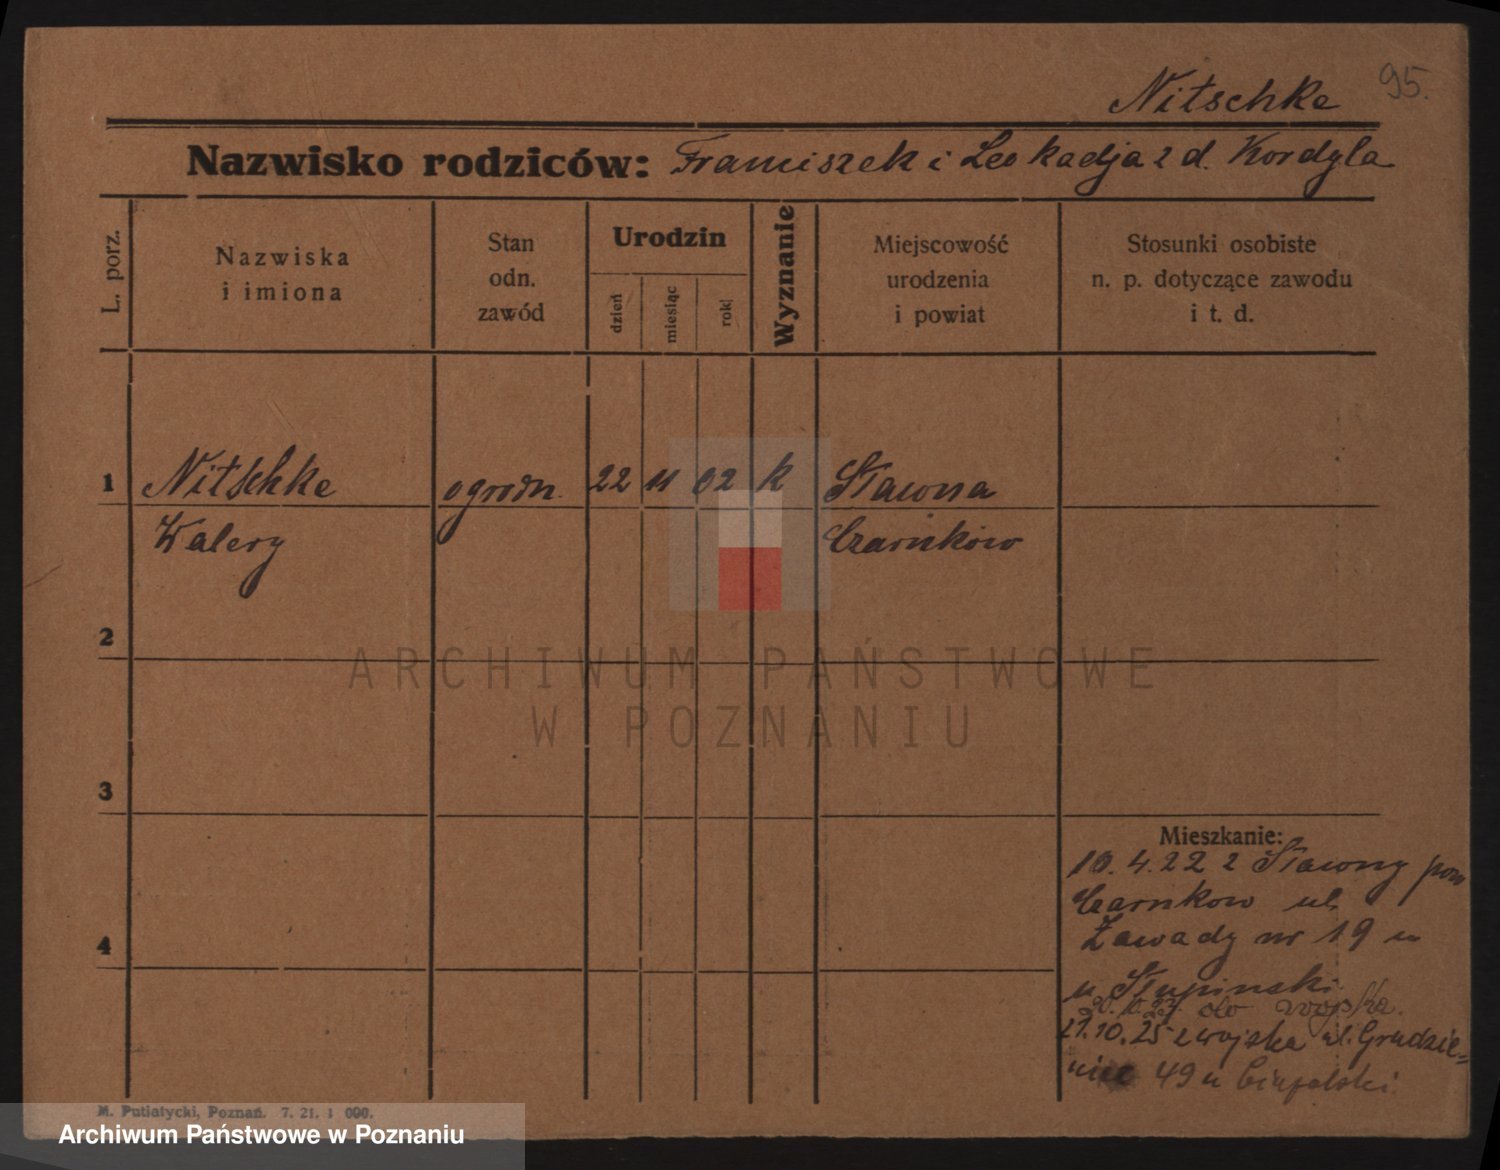 Nitschke 95.
Nazwisko rodziców: Franciszek i Leokadja z d. Kordyla
L. porz.
Nazwiska
i imiona
Stan
odn.
zawód
Urodzin
dzień
miesiąc
rok
Wyznanie
Miejscowość
urodzenia
i powiat
Stosunki osobiste
n. p. dotyczące zawodu
i t. d.
1 Nitschke ogrodn. 22 11 02 k Stawna
Walery Czarnków
2
ARCHIWUM PAŃSTWOWE
W POZNANIU
3
Mieszkanie:
10.4.22 z Stawny pow
Czarnkow ul.
4
Zawady nr 19
u Słupinski
20.10.23 do wojska.
21.10.25 z wojska ul. Grudzie=
niec 49 u
M. Putiatycki, Poznań. 7. 21. 1 000.
Archiwum Państwowe w Poznaniu